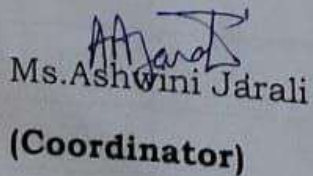 Ms.Ashwini Jarali
(Coordinator)